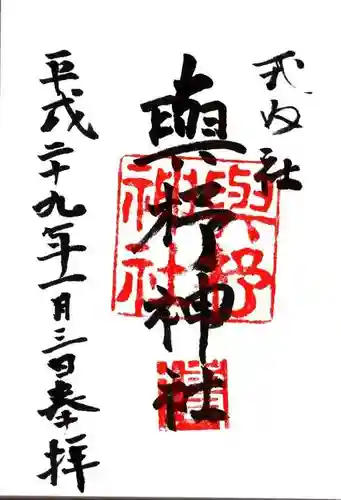 式内社
與杼神社
平成二十九年一月三日奉拝
與杼
神社